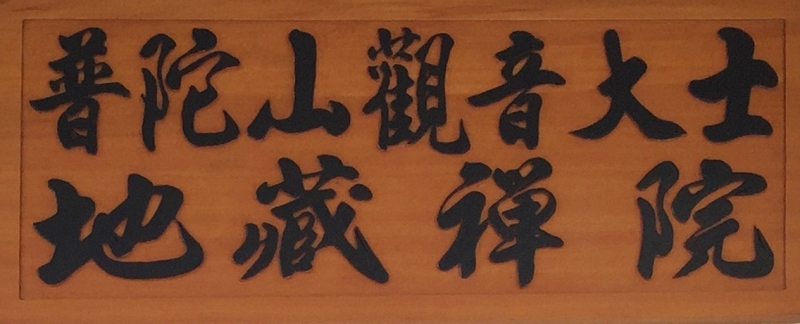 普陀山觀音大士
地藏禪院